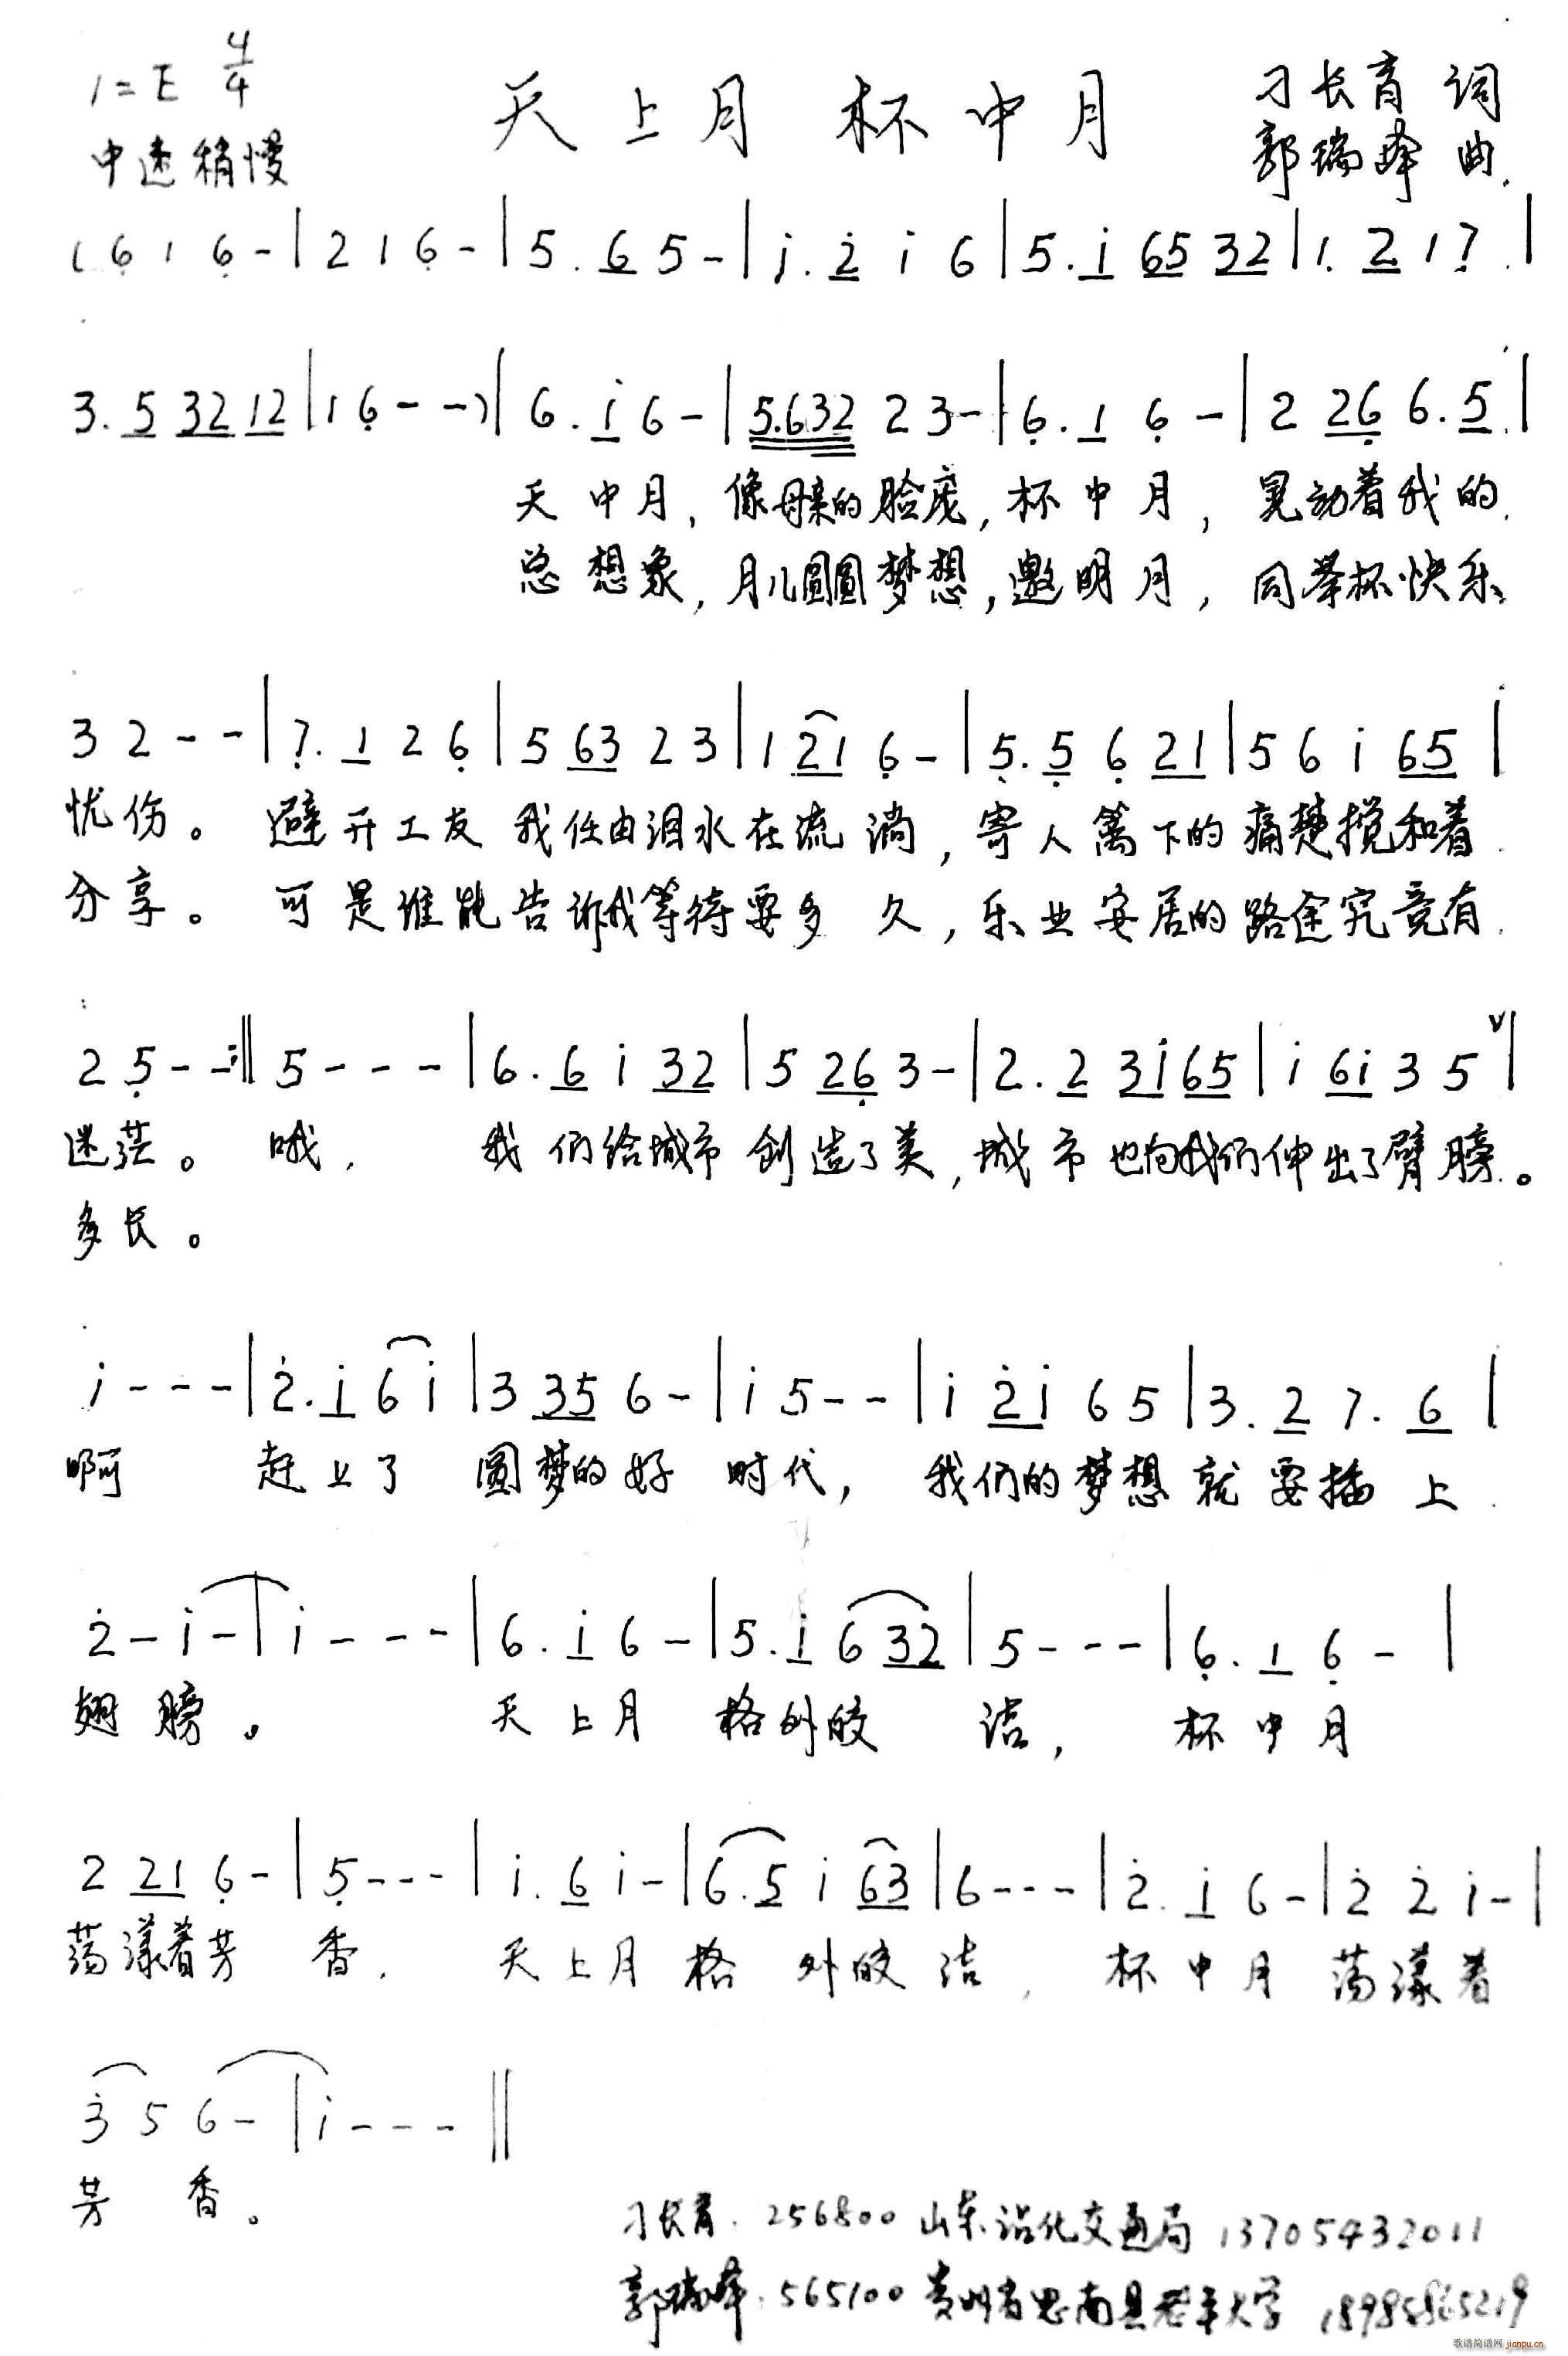 1=E 4/4
天上月 杯中月
刁长育 词
中速稍慢
郭瑞峰 曲
( 6̣ 1 6̣ - | 2 1 6̣ - | 5. 6 5 - | i. 2̇ i 6 | 5. i 65 32 | 1. 2 1 7̣. |
3. 5 32 12 | 1 6̣ - - ) | 6. i 6 - | 5.632 2 3 - | 6̣. 1 6̣ - | 2 26̣ 6. 5 |
天中月, 像母亲的脸庞, 杯中月, 晃动着我的
总想象, 月儿圆圆梦想, 邀明月, 同举杯快乐
3 2 - - | 7̣. 1 2 6̣ | 5 63 2 3 | 1 21 6̣ - | 5̣. 5̣ 6̣ 21 | 5 6 i 65 |
忧伤。 避开工友 我任由泪水在流淌, 寄人篱下的痛楚搅和着
分享。 可是谁能告诉我等待要多久, 乐业安居的路途究竟有
2 5̣ - - :‖ 5 - - - | 6. 6 i 32 | 5 26̣ 3 - | 2. 2 3i 65 | i 6i 3 5 ∨ |
迷茫。 哦, 我们给城市创造了美, 城市也向我们伸出了臂膀。
多长。
i - - - | 2̇. i 6 i | 3 35 6 - | i 5 - - | i 2̇i 6 5 | 3. 2 7. 6 |
啊 赶上了 圆梦的好时代, 我们的梦想就要插上
2̇ - i - | i - - - | 6. i 6 - | 5. i 6 32 | 5 - - - | 6̣. 1 6̣ - |
翅膀。 天上月 格外皎洁, 杯中月
2 21 6̣ - | 5̣ - - - | i. 6 i - | 6. 5 i 63 | 6 - - - | 2̇. i 6 - | 2̇ 2̇ i - |
荡漾着芳香. 天上月格外皎洁, 杯中月荡漾着
3̇ 5 6 - | i - - - ‖
芳香。
刁长育. 256800 山东沾化交通局 13705432011
郭瑞峰. 565100 贵州省思南县老年大学
歌谱简谱网 jianpu.cn